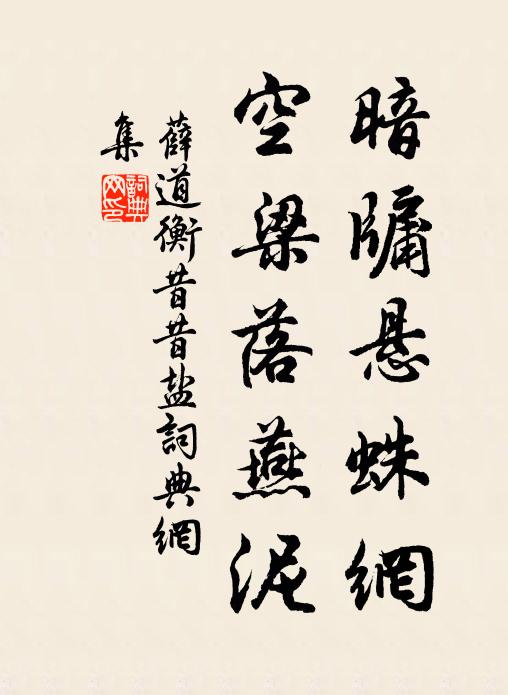 暗牖悬蛛網
空梁落燕泥
薛道衡昔昔盐詞典網
集
詞典
网印